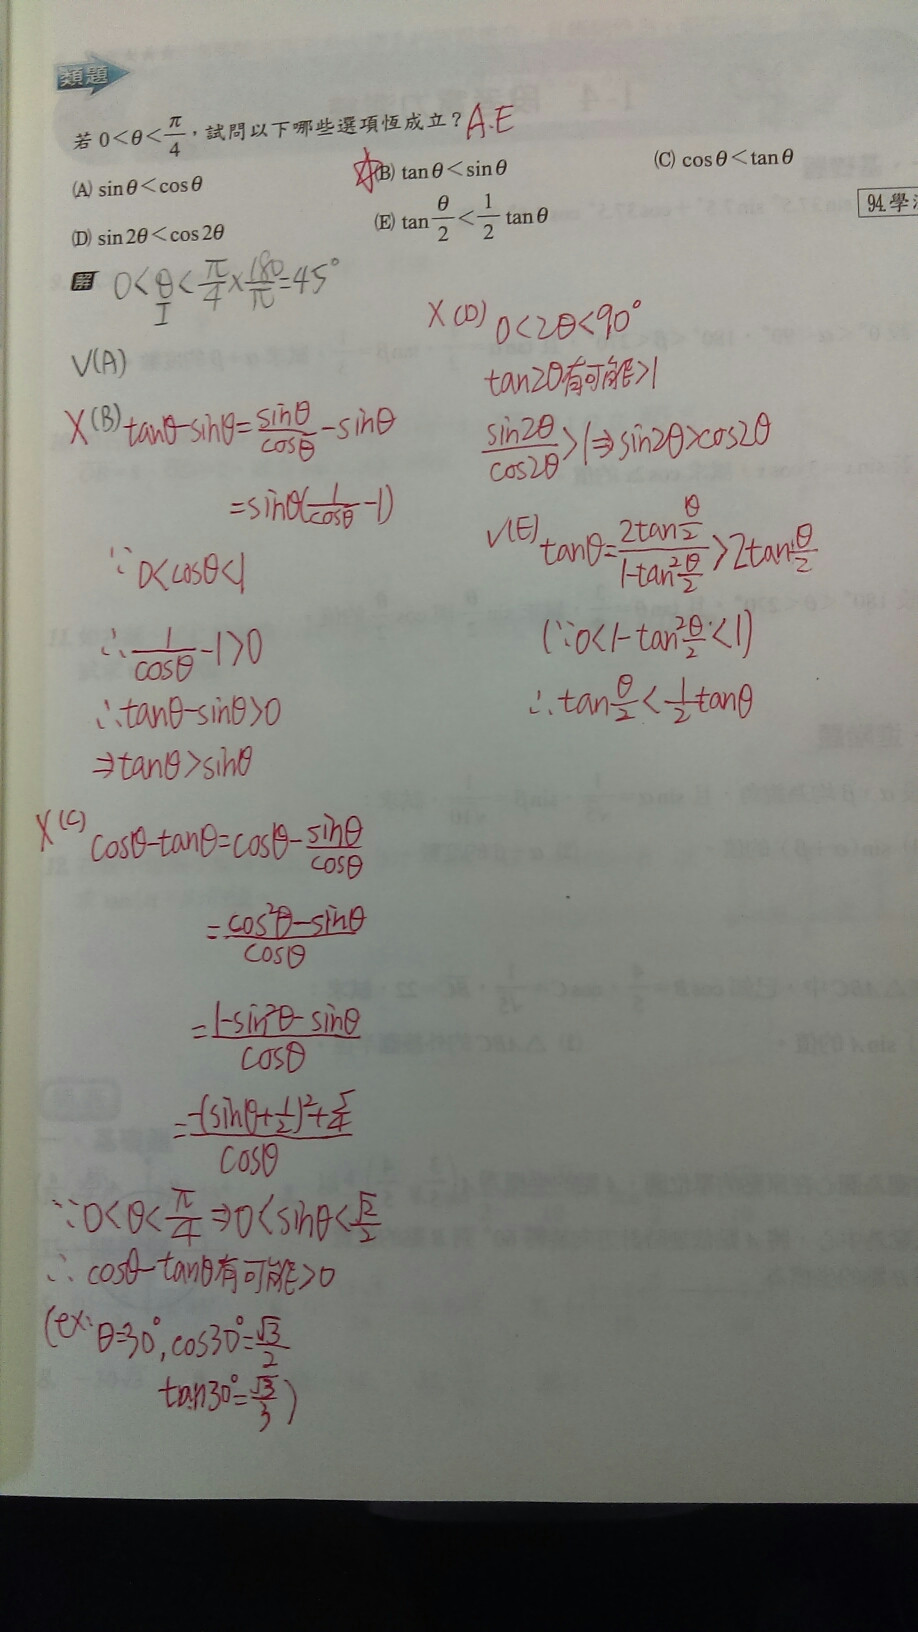 類題
若 0<θ<π/4，試問以下哪些選項恆成立？A.E
(A) sinθ<cosθ
(B) tanθ<sinθ
(C) cosθ<tanθ
(D) sin2θ<cos2θ
(E) tan θ/2 < 1/2 tanθ
94.學
解 0<θ<π/4×180/π=45°
I
V(A)
X(B) tanθ-sinθ=sinθ/cosθ-sinθ
=sinθ(1/cosθ-1)
∵0<cosθ<1
∴1/cosθ-1>0
∴tanθ-sinθ>0
⇒tanθ>sinθ
X(C) cosθ-tanθ=cosθ-sinθ/cosθ
=cos²θ-sinθ/cosθ
=1-sin²θ-sinθ/cosθ
=-(sinθ+1/2)²+5/4/cosθ
∵0<θ<π/4⇒0<sinθ<√2/2
∴cosθ-tanθ有可能>0
(ex: θ=30°, cos30°=√3/2
tan30°=√3/3)
X(D) 0<2θ<90°
tan2θ有可能>1
sin2θ/cos2θ>1⇒sin2θ>cos2θ
V(E) tanθ=2tanθ/2/1-tan²θ/2>2tanθ/2
(∵0<1-tan²θ/2<1)
∴tanθ/2<1/2tanθ